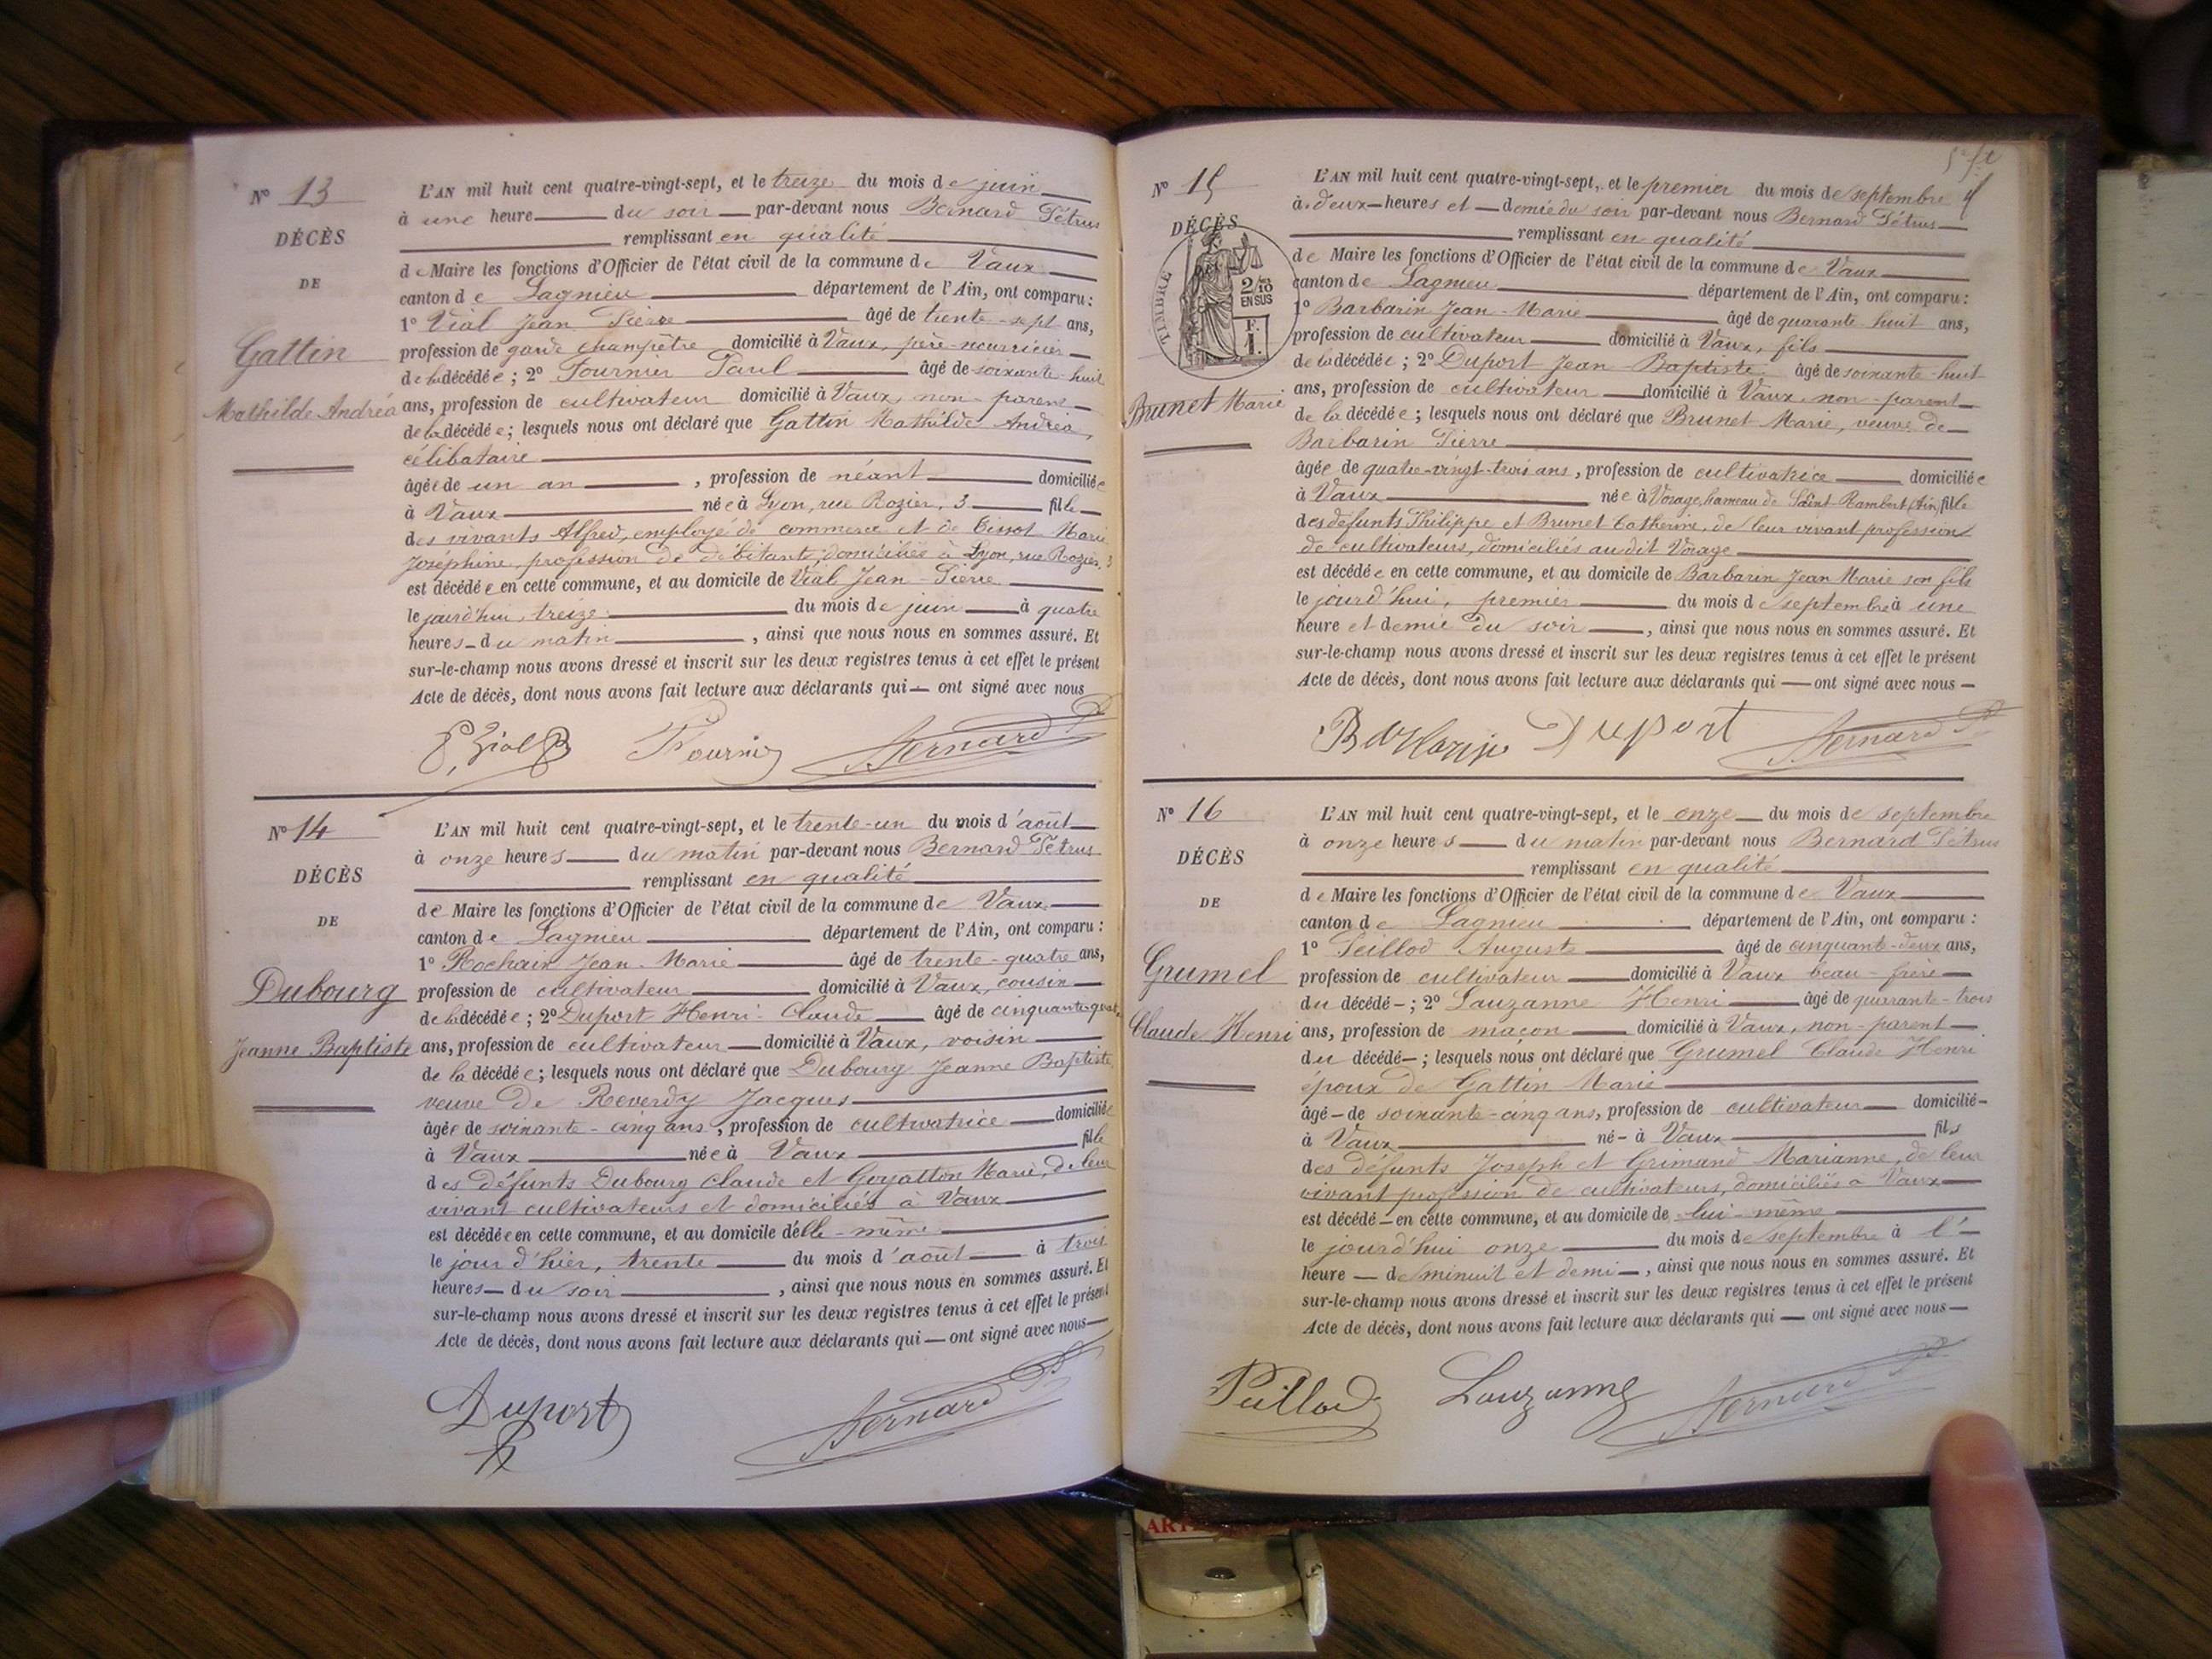 N° 13
DÉCÈS
DE
Gattin
Mathilde Andréa
L'AN mil huit cent quatre-vingt-sept, et le treize du mois de juin
à une heure du soir par-devant nous Bernard Pétrus
remplissant en qualité
de Maire les fonctions d'Officier de l'état civil de la commune de Vaux
canton de Lagnieu département de l'Ain, ont comparu :
1° Vial Jean Pierre âgé de trente-sept ans,
profession de garde champêtre domicilié à Vaux, père-nourricier
de la décédée ; 2° Fournier Paul âgé de soixante-huit
ans, profession de cultivateur domicilié à Vaux, non-parent
de la décédée ; lesquels nous ont déclaré que Gattin Mathilde Andréa,
célibataire
âgée de un an , profession de néant domiciliée
à Vaux née à Lyon, rue Rozier, 3 fille
des vivants Alfred, employé de commerce et de Tissot Marie
Joséphine, profession de débitants, domiciliés à Lyon, rue Rozier, 3
est décédée en cette commune, et au domicile de Vial Jean-Pierre
le jourd'hui, treize du mois de juin à quatre
heures du matin , ainsi que nous nous en sommes assuré. Et
sur-le-champ nous avons dressé et inscrit sur les deux registres tenus à cet effet le présent
Acte de décès, dont nous avons fait lecture aux déclarants qui ont signé avec nous
Vial Fournier Bernard P
N° 14
DÉCÈS
DE
Dubourg
Jeanne Baptiste
L'AN mil huit cent quatre-vingt-sept, et le trente-un du mois d'août
à onze heures du matin par-devant nous Bernard Pétrus
remplissant en qualité
de Maire les fonctions d'Officier de l'état civil de la commune de Vaux
canton de Lagnieu département de l'Ain, ont comparu :
1° Rochaix Jean-Marie âgé de trente-quatre ans,
profession de cultivateur domicilié à Vaux, cousin
de la décédée ; 2° Duport Henri-Claude âgé de cinquante-quatre
ans, profession de cultivateur domicilié à Vaux, voisin
de la décédée ; lesquels nous ont déclaré que Dubourg Jeanne Baptiste
veuve de Reverdy Jacques
âgée de soixante-cinq ans, profession de cultivatrice domiciliée
à Vaux née à Vaux fille
des défunts Dubourg Claude et Goyatton Marie, de leur
vivant cultivateurs et domiciliés à Vaux
est décédée en cette commune, et au domicile d'elle-même
le jour d'hier, trente du mois d'août à trois
heures du soir , ainsi que nous nous en sommes assuré. Et
sur-le-champ nous avons dressé et inscrit sur les deux registres tenus à cet effet le présent
Acte de décès, dont nous avons fait lecture aux déclarants qui ont signé avec nous
Duport Bernard P
N° 15
DÉCÈS
TIMBRE
2/10
EN SUS
Brunet Marie
L'AN mil huit cent quatre-vingt-sept, et le premier du mois de septembre
à deux heures et demie du soir par-devant nous Bernard Pétrus
remplissant en qualité
de Maire les fonctions d'Officier de l'état civil de la commune de Vaux
canton de Lagnieu département de l'Ain, ont comparu :
1° Barbarin Jean-Marie âgé de quarante-huit ans,
profession de cultivateur domicilié à Vaux, fils
de la décédée ; 2° Duport Jean Baptiste âgé de soixante-huit
ans, profession de cultivateur domicilié à Vaux non-parent
de la décédée ; lesquels nous ont déclaré que Brunet Marie, veuve de
Barbarin Pierre
âgée de quatre-vingt-trois ans, profession de cultivatrice domiciliée
à Vaux née à Vorage, hameau de Saint-Rambert (Ain) fille
des défunts Philippe et Brunet Catherine, de leur vivant profession
de cultivateurs, domiciliés audit Vorage
est décédée en cette commune, et au domicile de Barbarin Jean Marie son fils
le jourd'hui, premier du mois de septembre à une
heure et demie du soir , ainsi que nous nous en sommes assuré. Et
sur-le-champ nous avons dressé et inscrit sur les deux registres tenus à cet effet le présent
Acte de décès, dont nous avons fait lecture aux déclarants qui ont signé avec nous
Barbarin Duport Bernard P
N° 16
DÉCÈS
DE
Grumel
Claude Henri
L'AN mil huit cent quatre-vingt-sept, et le onze du mois de septembre
à onze heures du matin par-devant nous Bernard Pétrus
remplissant en qualité
de Maire les fonctions d'Officier de l'état civil de la commune de Vaux
canton de Lagnieu département de l'Ain, ont comparu :
1° Peillod Auguste âgé de cinquante-deux ans,
profession de cultivateur domicilié à Vaux beau-frère
du décédé ; 2° Lauzanne Henri âgé de quarante-trois
ans, profession de maçon domicilié à Vaux, non-parent
du décédé ; lesquels nous ont déclaré que Grumel Claude Henri
époux de Gattin Marie
âgé de soixante-cinq ans, profession de cultivateur domicilié
à Vaux né à Vaux fils
des défunts Joseph et Grimand Marianne, de leur
vivant profession de cultivateurs, domiciliés à Vaux
est décédé en cette commune, et au domicile de lui-même
le jourd'hui onze du mois de septembre à l'
heure de minuit et demi , ainsi que nous nous en sommes assuré. Et
sur-le-champ nous avons dressé et inscrit sur les deux registres tenus à cet effet le présent
Acte de décès, dont nous avons fait lecture aux déclarants qui ont signé avec nous
Peillod Lauzanne Bernard P